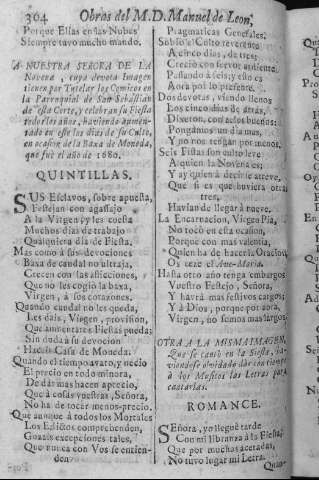 304 Obras del M. D. Manuel de Leon,
Porque Ellas en las Nubes
Siempre tuvo mucho mando.
A NUESTRA SEÑORA DE LA
Novena, cuya devota Imagen
tienen por Tutelar los Comicos en
la Parroquial de San Sebastian
de esta Corte, y celebran su Fiesta
todos los años, haviendo aumen-
tado en este los dias de su Culto,
en ocasion de la Baxa de Moneda,
que fuè el año de 1680.
QUINTILLAS.
SUS Esclavos, sobre apuesta,
Festejan con agassajo
A la Virgen, y les cuesta
Muchos dias de trabajo
Qualquiera dia de Fiesta.
Mas como à sus devociones
Baxa de caudal no ultraja,
Crecen con las aflicciones,
Que no les cogiò la baxa,
Virgen, à sus corazones.
Quando caudal no les queda,
Les dais, Virgen, provision,
Que aumentare Fiestas pueda;
Sin duda à su devocion
Haceis Casa de Moneda.
Quando el tiempo avaro, y necio
El precio en todo minora,
De dar mas hacen aprecio,
Que à cosas vuestras, Señora,
No ha de tocar menos-precio.
Que aunque à todos los Mortales
Los Edictos comprehenden,
Gozais excepciones tales,
Que nunca con Vos se entien-
denden
Pragmaticas Generales.
Subiò el Culto reverente
A cinco dias, de tres;
Creciò con fervor ardiente,
Passando à seis; y esto es
Aora por lo presente.
Dos devotas, viendo llenos
Los cinco dias de atràs,
Dixeron, con zelos buenos:
Pongamos un dia mas,
Y no nos tengan por menos.
Seis Fiestas son culto leve
A quien la Novena es;
Y ay quien à decir se atreve,
Que si es que huviera otra
tres,
Havian de llegar à nueve.
La Encarnacion, Virgen Pia,
No tocò en esta ocasion,
Porque con mas valentia,
Quien ha de hacer la Oracion,
Os cace el Ave-Maria.
Hasta otro año tenga embargos
Vuestro Festejo, Señora,
Y havrà mas festivos cargos;
Y à Dios, porque por aora,
Virgen, no somos mas largos.
OTRA A LA MISMA IMAGEN,
Que se cantò en la Fiesta, ha-
viendose olvidado dàr con tiempo
à los Musicos las Letras para
cantarlas.
ROMANCE.
SEñora, yo lleguè tarde
Con mi libranza à la Fiesta,
Que por muchas acetadas,
No tuvo lugar mi Letra.
Quan-